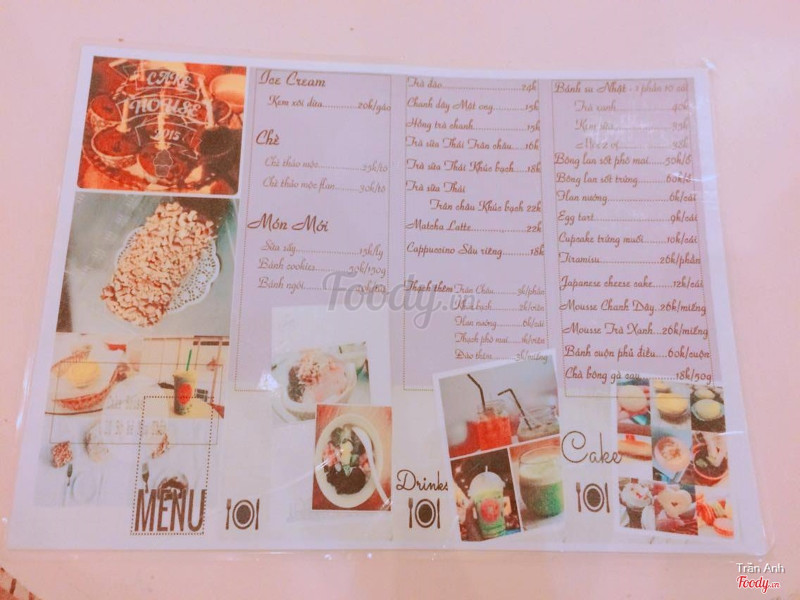 CAKE
HOUSE
2015
MENU
Ice Cream
Kem xôi dừa............20k/gáo
Chè
Chè thảo mộc............25k/tô
Chè thảo mộc flan.........30k/tô
Món Mới
Sữa sấy..................15k/ly
Bánh cookies............35k/150g
Bánh ngói
Trà đào.................24k
Chanh dây Mật ong........15k
Hồng trà chanh............15k
Trà sữa Thái Trân châu.....16k
Trà sữa Thái Khúc bạch....18k
Trà sữa Thái
Trân châu Khúc bạch 22k
Matcha Latte.............22k
Cappuccino Sầu riêng.......18k
Thạch thêm Trân Châu 3k/phần
Khúc bạch 2k/viên
Flan nướng........6k/cái
Thạch phô mai....1k/viên
Đào thêm.......3k/miếng
Drinks
Bánh su Nhật - 1 phần 10 cái
Trà xanh 40k
Kem sữa 35k
38k
Bông lan sốt phô mai......50k/ổ
Bông lan sốt trứng........60k/ổ
Flan nướng..............6k/cái
Egg tart.................9k/cái
Cupcake trứng muối.......10k/cái
Tiramisu................26k/phần
Japanese cheese cake......12k/cái
Mousse Chanh Dây..26k/miếng
Mousse Trà Xanh...26k/miếng
Bánh cuộn phủ điều......60k/cuộn
Chà bông gà sấy..........18k/50g
Cake
Foody.vn
Trân Anh
Foody.vn